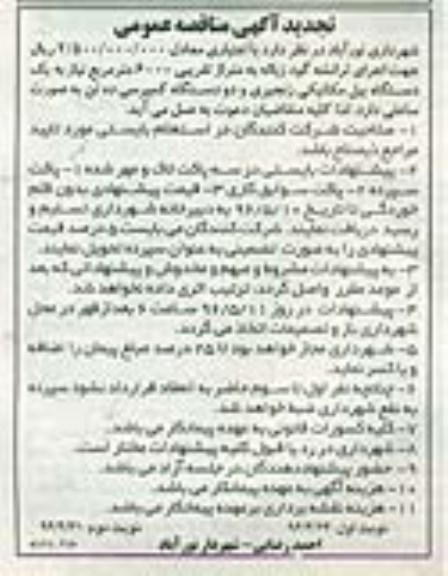 تجدید آگهی مناقصه عمومی
شهرداری نورآباد در نظر دارد با اعتباری معادل ۲/۵۰۰/۰۰۰/۰۰۰ ریال
جهت اجرای ترانشه گود زباله به متراژ تقریبی ۶۰۰۰ مترمربع نیاز به یک
دستگاه بیل مکانیکی زنجیری و دو دستگاه کمپرسی ده تن به صورت
ساعتی دارد. لذا کلیه متقاضیان دعوت به عمل می آید.
۱- صلاحیت شرکت کنندگان در استعلام بایستی مورد تایید
مراجع ذیصلاح باشد.
۲- پیشنهادات بایستی در سه پاکت لاک و مهر شده ۱- پاکت
سپرده ۲- پاکت سوابق کاری ۳- قیمت پیشنهادی بدون قلم
خوردگی تا تاریخ ۹۶/۵/۱۰ به دبیرخانه شهرداری تسلیم و
رسید دریافت نمایند. شرکت کنندگان می بایست ۵ درصد قیمت
پیشنهادی را به صورت تضمینی به عنوان سپرده تحویل نمایند.
۳- به پیشنهادات مشروط و مبهم و مخدوش و پیشنهاداتی که بعد
از موعد مقرر واصل گردد، ترتیب اثری داده نخواهد شد.
۴- پیشنهادات در روز ۹۶/۵/۱۱ ساعت ۶ بعدازظهر در محل
شهرداری باز و تصمیمات اتخاذ می گردد.
۵- شهرداری مجاز خواهد بود تا ۲۵ درصد مبلغ پیمان را اضافه
و یا کسر نماید.
۶- چنانچه نفر اول تا سوم حاضر به انعقاد قرارداد نشود سپرده
به نفع شهرداری ضبط خواهد شد.
۷- کلیه کسورات قانونی به عهده پیمانکار می باشد.
۸- شهرداری در رد یا قبول کلیه پیشنهادات مختار است.
۹- حضور پیشنهاددهندگان در جلسه آزاد می باشد.
۱۰- هزینه آگهی به عهده پیمانکار می باشد.
۱۱- هزینه نقشه برداری بر عهده پیمانکار می باشد.
نوبت اول: نوبت دوم
احمد رضایی - شهردار نورآباد